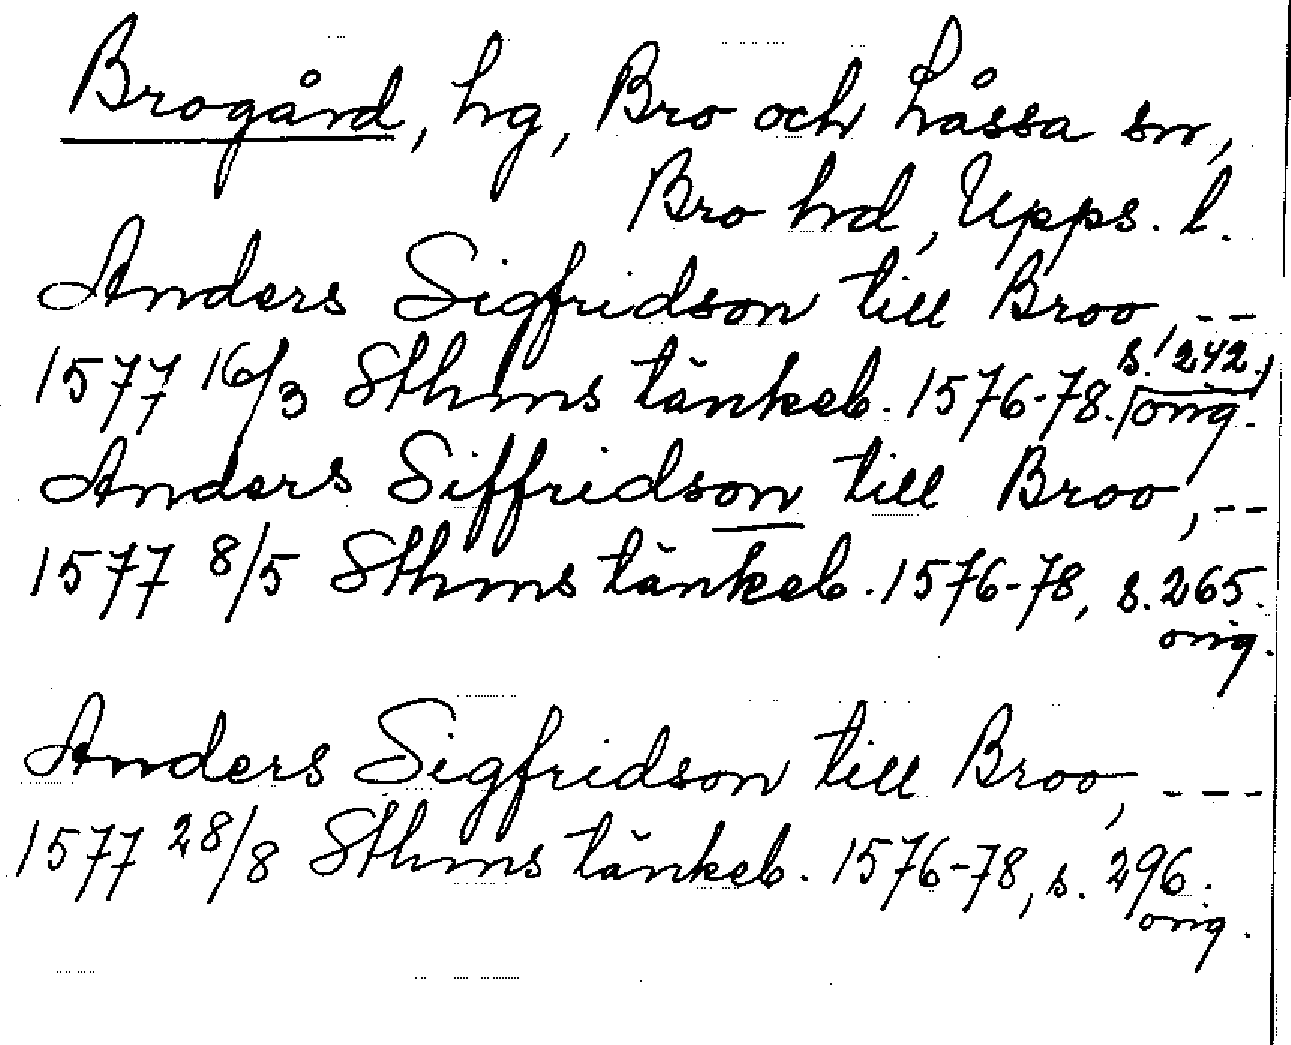 Brogård, hg, Bro och Låssa sn,
Bro hd, Upps. l.
Anders Sigfridson till Broo, --
1577 16/3 Sthms tänkeb. 1576-78. s. 242.
orig.
Anders Siffridson till Broo, --
1577 8/5 Sthms tänkeb. 1576-78, s. 265.
orig.
Anders Sigfridson till Broo, ---
1577 28/8 Sthms tänkeb. 1576-78, s. 296.
orig.